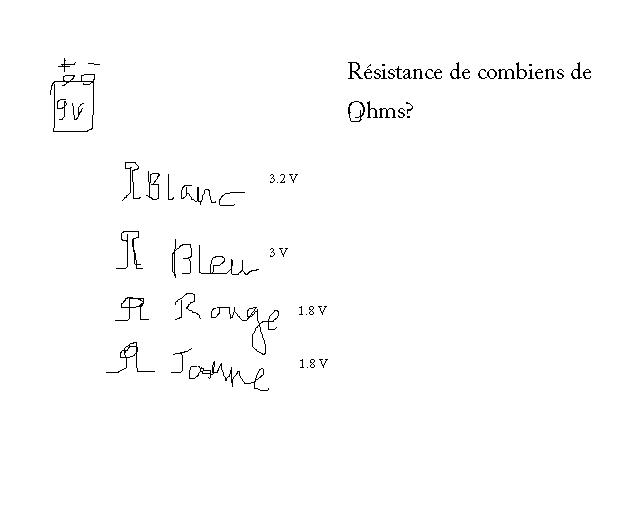 + -
Résistance de combiens de
Ohms?
9V
Blanc 3.2 V
Bleu 3 V
Rouge 1.8 V
Jaune 1.8 V